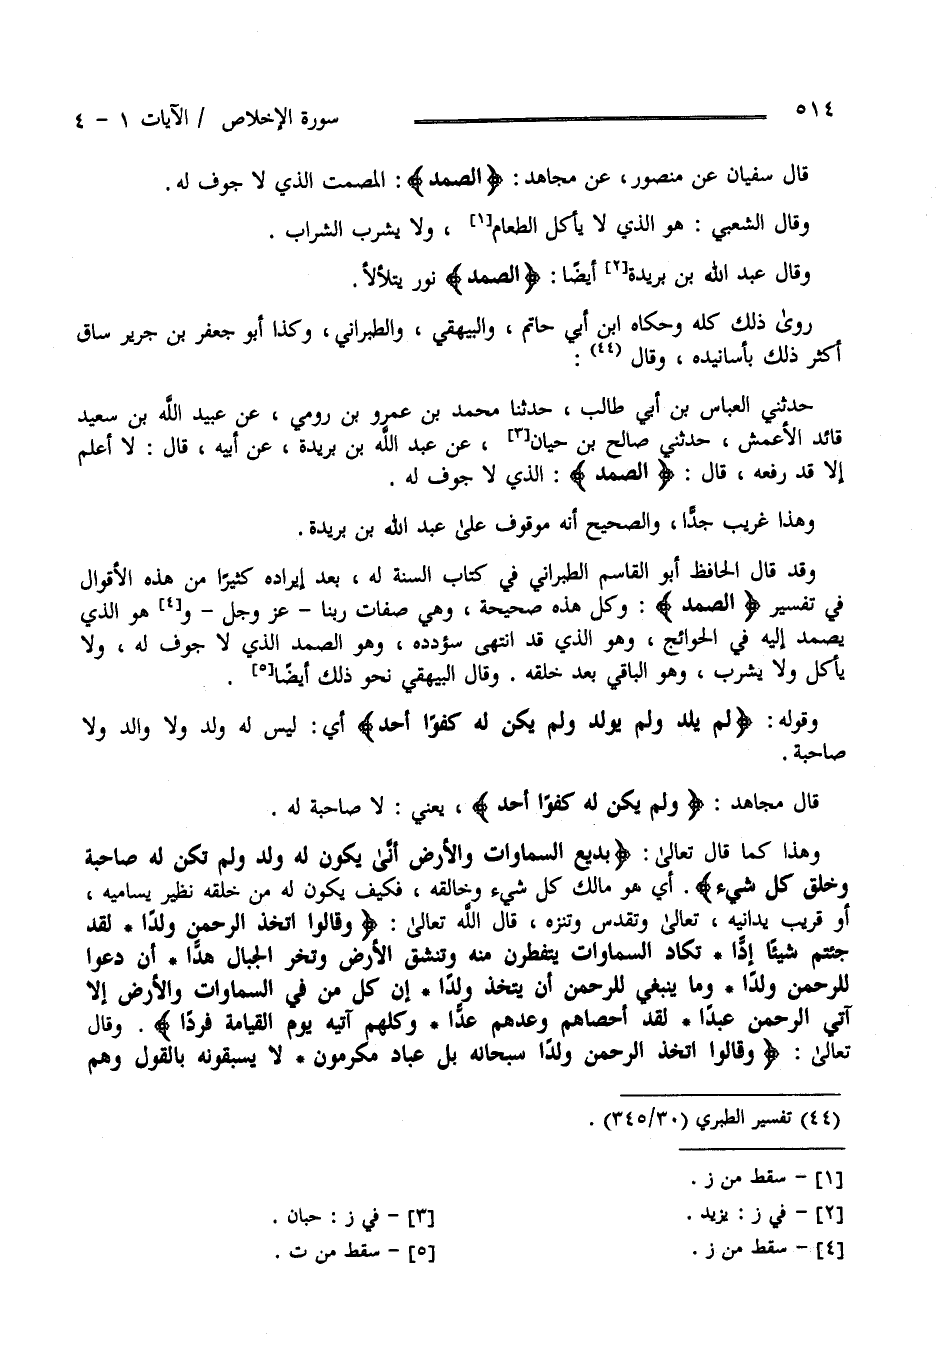 ٥١٤ سورة الإخلاص / الآيات ١ - ٤
قال سفيان عن منصور، عن مجاهد: ﴿الصمد﴾: المصمت الذي لا جوف له.
وقال الشعبي : هو الذي لا يأكل الطعام[١] ، ولا يشرب الشراب .
وقال عبد الله بن بريدة[٢] أيضًا: ﴿الصمد﴾ نور يتلألأ.
روىٰ ذلك كله وحكاه ابن أبي حاتم ، والبيهقي ، والطبراني، وكذا أبو جعفر بن جرير ساق
أكثر ذلك بأسانيده ، وقال (٤٤) :
حدثني العباس بن أبي طالب ، حدثنا محمد بن عمرو بن رومي ، عن عبيد الله بن سعيد
قائد الأعمش ، حدثني صالح بن حيان[٣] ، عن عبد الله بن بريدة ، عن أبيه ، قال : لا أعلم
إلا قد رفعه ، قال : ﴿ الصمد ﴾ : الذي لا جوف له .
وهذا غريب جدًّا، والصحيح أنه موقوف علىٰ عبد الله بن بريدة.
وقد قال الحافظ أبو القاسم الطبراني في كتاب السنة له ، بعد إيراده كثيرًا من هذه الأقوال
في تفسير ﴿ الصمد ﴾ : وكل هذه صحيحة ، وهي صفات ربنا - عز وجل - و[٤] هو الذي
يصمد إليه في الحوائج ، وهو الذي قد انتهى سؤدده ، وهو الصمد الذي لا جوف له ، ولا
يأكل ولا يشرب ، وهو الباقي بعد خلقه . وقال البيهقي نحو ذلك أيضًا[٥] .
وقوله: ﴿لم يلد ولم يولد ولم يكن له كفوًا أحد﴾ أي: ليس له ولد ولا والد ولا
صاحبة .
قال مجاهد : ﴿ ولم يكن له كفوًا أحد ﴾ ، يعني : لا صاحبة له .
وهذا كما قال تعالىٰ: ﴿بديع السماوات والأرض أنَّىٰ يكون له ولد ولم تكن له صاحبة
وخلق كل شيء﴾. أي هو مالك كل شيء وخالقه ، فكيف يكون له من خلقه نظير يساميه ،
أو قريب يدانيه ، تعالىٰ وتقدس وتنزه ، قال الله تعالىٰ : ﴿ وقالوا اتخذ الرحمن ولدًا * لقد
جئتم شيئًا إدًّا * تكاد السماوات يتفطرن منه وتنشق الأرض وتخر الجبال هدًّا * أن دعوا
للرحمن ولدًا * وما ينبغي للرحمن أن يتخذ ولدًا * إن كل من في السماوات والأرض إلا
آتي الرحمن عبدًا * لقد أحصاهم وعدهم عدًّا * وكلهم آتيه يوم القيامة فردًا ﴾ . وقال
تعالىٰ : ﴿ وقالوا اتخذ الرحمن ولدًا سبحانه بل عباد مكرمون * لا يسبقونه بالقول وهم
(٤٤) تفسير الطبري (٣٤٥/٣٠) .
[١] - سقط من ز .
[٢] - في ز : يزيد . [٣] - في ز : حبان .
[٤] - سقط من ز . [٥] - سقط من ت .